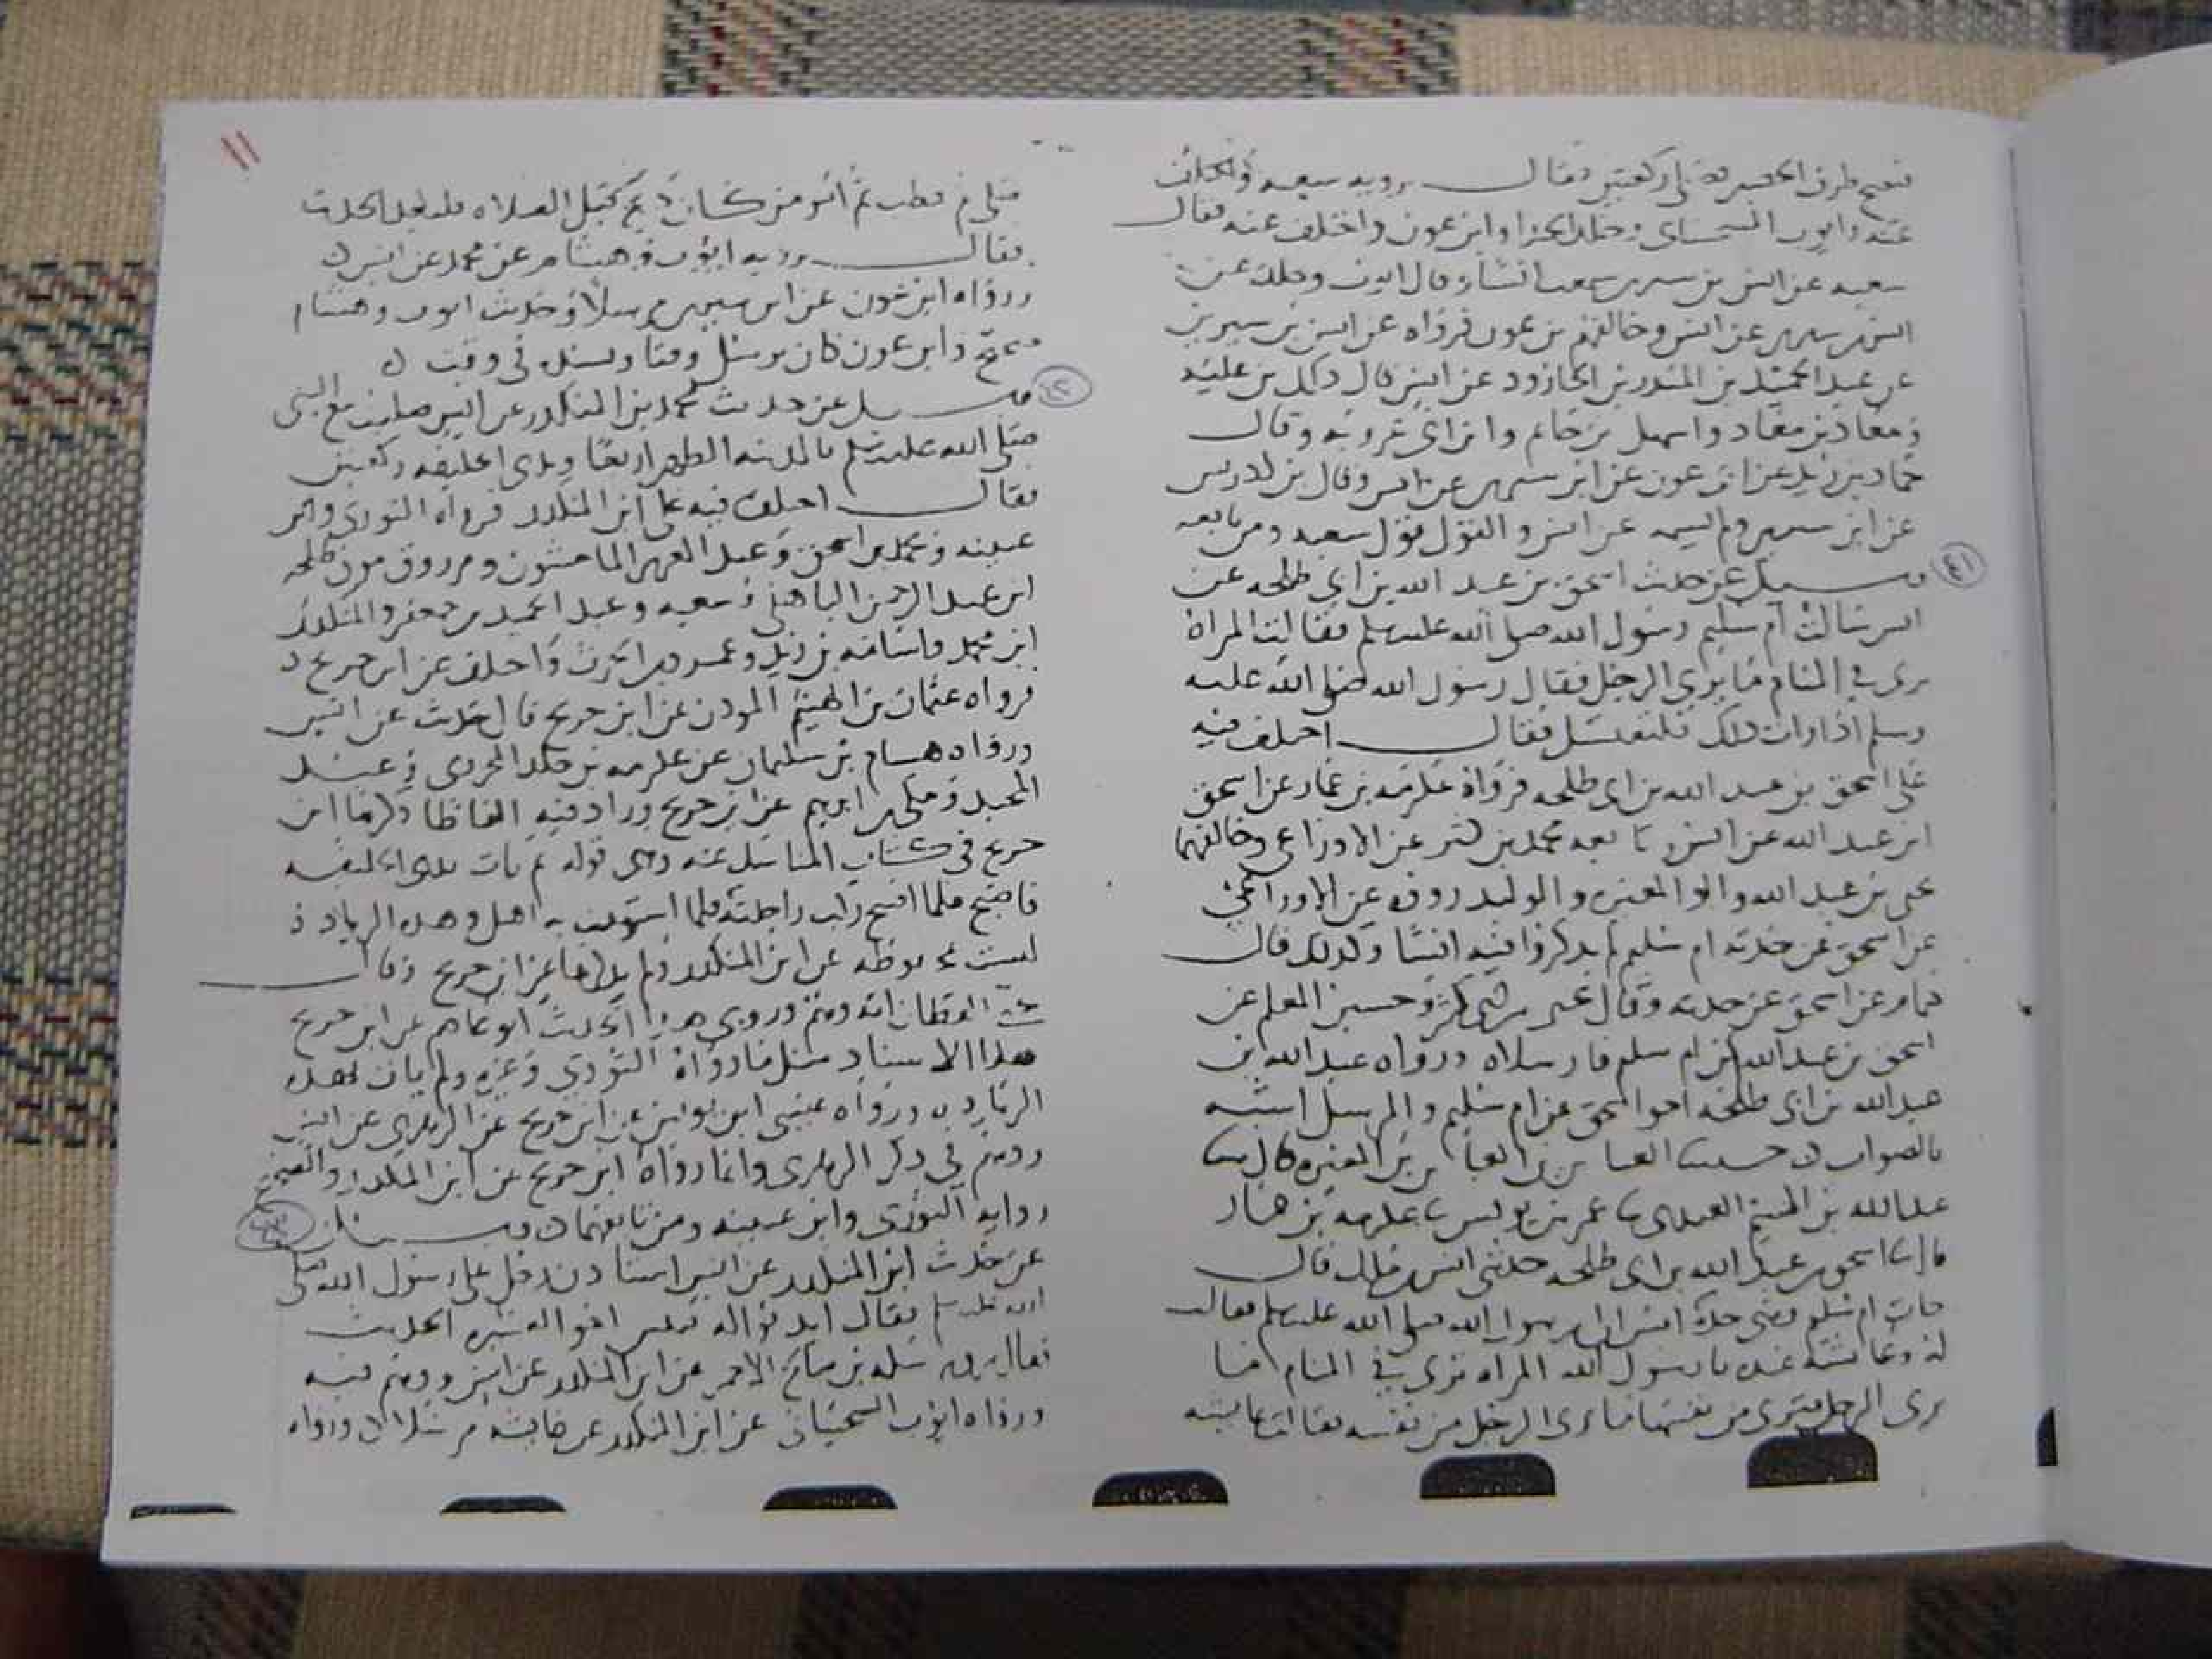 فنضح طرف الحصير فصلى ركعتين فقال يرويه سعيد واختلف
عنه وايوب السختياني وخالد الحذا وابن عون واختلف عنه فقال
سعيد عن انس بن سيرين سمعت انسا وقال ايوب وخالد عن
انس بن سيرين عن انس وخالفهم بن عون فرواه عن انس بن سيرين
عن عبد الحميد بن المنذر بن الجارود عن انس قال ذلك بن علية
ومعاذ بن معاذ واسهل بن حاتم وابن ابي عروبة وقال
حماد بن زيد عن ابن عون عن ابن سيرين عن انس وقال بن ادريس
عن ابن سيرين ولم يسمه عن انس والقول قول سعيد ومن تابعه
(٤١) وسئل عن حديث اسحق بن عبد الله بن ابي طلحه عن
انس سالت ام سليم رسول الله صلى الله عليه وسلم فقالت المراة
ترى في المنام ما يرى الرجل فقال رسول الله صلى الله عليه
وسلم اذا رات ذلك فلتغتسل فقال اختلف فيه
على اسحق بن عبد الله بن ابي طلحه فرواه عكرمه بن عمار عن اسحق
ابن عبد الله عن انس تابعه محمد بن كثير عن الاوزاعي وخالفهما
يحيى بن عبد الله وابو المغيره والوليد رووه عن الاوزاعي
عن اسحق عن جدته ام سليم لم يذكروا فيه انسا وكذلك قال
همام عن اسحق عن جدته وقال يحيى بن ابي كثير وحسين المعلم عن
اسحق بن عبد الله عن ام سليم فارسلاه ورواه عبد الله بن
عبد الله بن ابي طلحه اخو اسحق عن ام سليم والمرسل اشبه
بالصواب ن حدثنا العباس بن العباس بن المغيره قال ثنا
عبد الله بن الهيثم العبدي ثنا عمر بن يونس ثنا عكرمه بن عمار
قال ثنا اسحق بن عبد الله بن ابي طلحه حدثني انس بن مالك قال
جات ام سليم وهي جدة انس الى رسول الله صلى الله عليه وسلم فقالت
له وعائشة عنده يا رسول الله المراه ترى في المنام ما
يرى الرجل فترى من نفسها ما يرى الرجل من نفسه فقالت عايشه
١١
صلى ثم خطب ثم امر من كان ذبح قبل الصلاه فليعد الحديث
فقال يرويه ايوب وهشام عن محمد عن انس ن
ورواه ابن عون عن ابن سيرين مرسلا وحديث ايوب وهشام
صحيح وابن عون كان يرسل وقتا ويسنده في وقت ن
(٤٢) وسئل عن حديث محمد بن المنكدر عن انس صليت مع النبي
صلى الله عليه وسلم بالمدينه الظهر اربعا وبذي الحليفه ركعتين
فقال اختلف فيه على ابن المنكدر فرواه الثوري وابن
عيينه ومحمد بن اسحق وعبد العزيز الماجشون ومرزوق مولى طلحه
ابن عبد الرحمن الباهلي وسعيد وعبد الحميد بن جعفر والمنكدر
ابن محمد واسامه بن زيد وعمرو بن الحرث واختلف عن ابن جريج ن
فرواه عثمان بن الهيثم المؤذن عن ابن جريج قال حدثت عن انس
ورواه هشام بن سليمان عن عكرمه بن خلد المخزومي وعبد
المجيد ومكي بن ابرهيم عن ابن جريج وزاد فيه الفاظا ذكرها ابن
جريج في كتاب المناسك عنه وهي قوله ثم بات بذي الحليفه
فاصبح فلما اصبح ركب راحلته فلما استوت به اهل وهذه الزياده
ليست محفوظه عن ابن المنكدر ولم يذكرها عن ابن جريج وقال
القطان انه وهم وروى هذا الحديث ابو عاصم عن ابن جريج
بهذا الاسناد مثل ما رواه الثوري وغيره ولم يات بهذه
الزياده ن ورواه عيسى ابن يونس عن ابن جريج عن الزهري عن انس
ووهم في ذكر الزهري وانما رواه ابن جريج عن ابن المنكدر والصحيح
رواية الثوري وابن عيينه ومن تابعهما ن وسئل (٤٣)
عن حديث ابن المنكدر عن انس استاذن رجل على رسول الله صلى
الله عليه وسلم فقال ايذنوا له فبئس اخو العشيره الحديث
فقال يرويه سلمه بن صالح الاحمر عن ابن المنكدر عن انس ووهم فيه
ورواه ايوب السختياني عن ابن المنكدر عن عايشه مرسلا ن ورواه